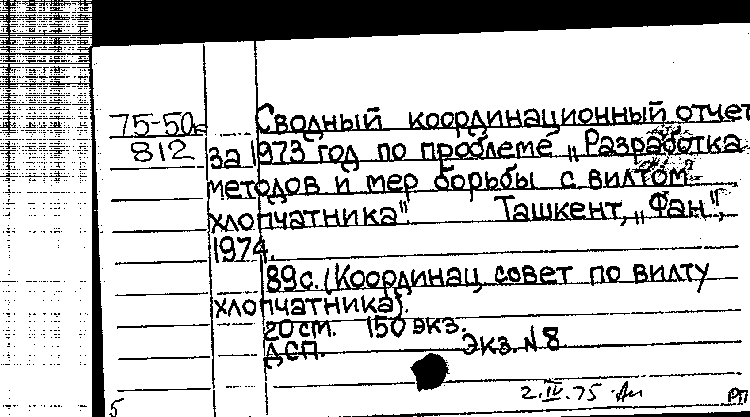 75-50с Сводный координационный отчет
812 за 1973 год по проблеме „Разработка
методов и мер борьбы с вилтом
хлопчатника" Ташкент, „Фан",
1974.
89с. (Координац. совет по вилту
хлопчатника).
20 см. 150 экз.
ДСП. Экз. N 8
2.IV.75
5 РП